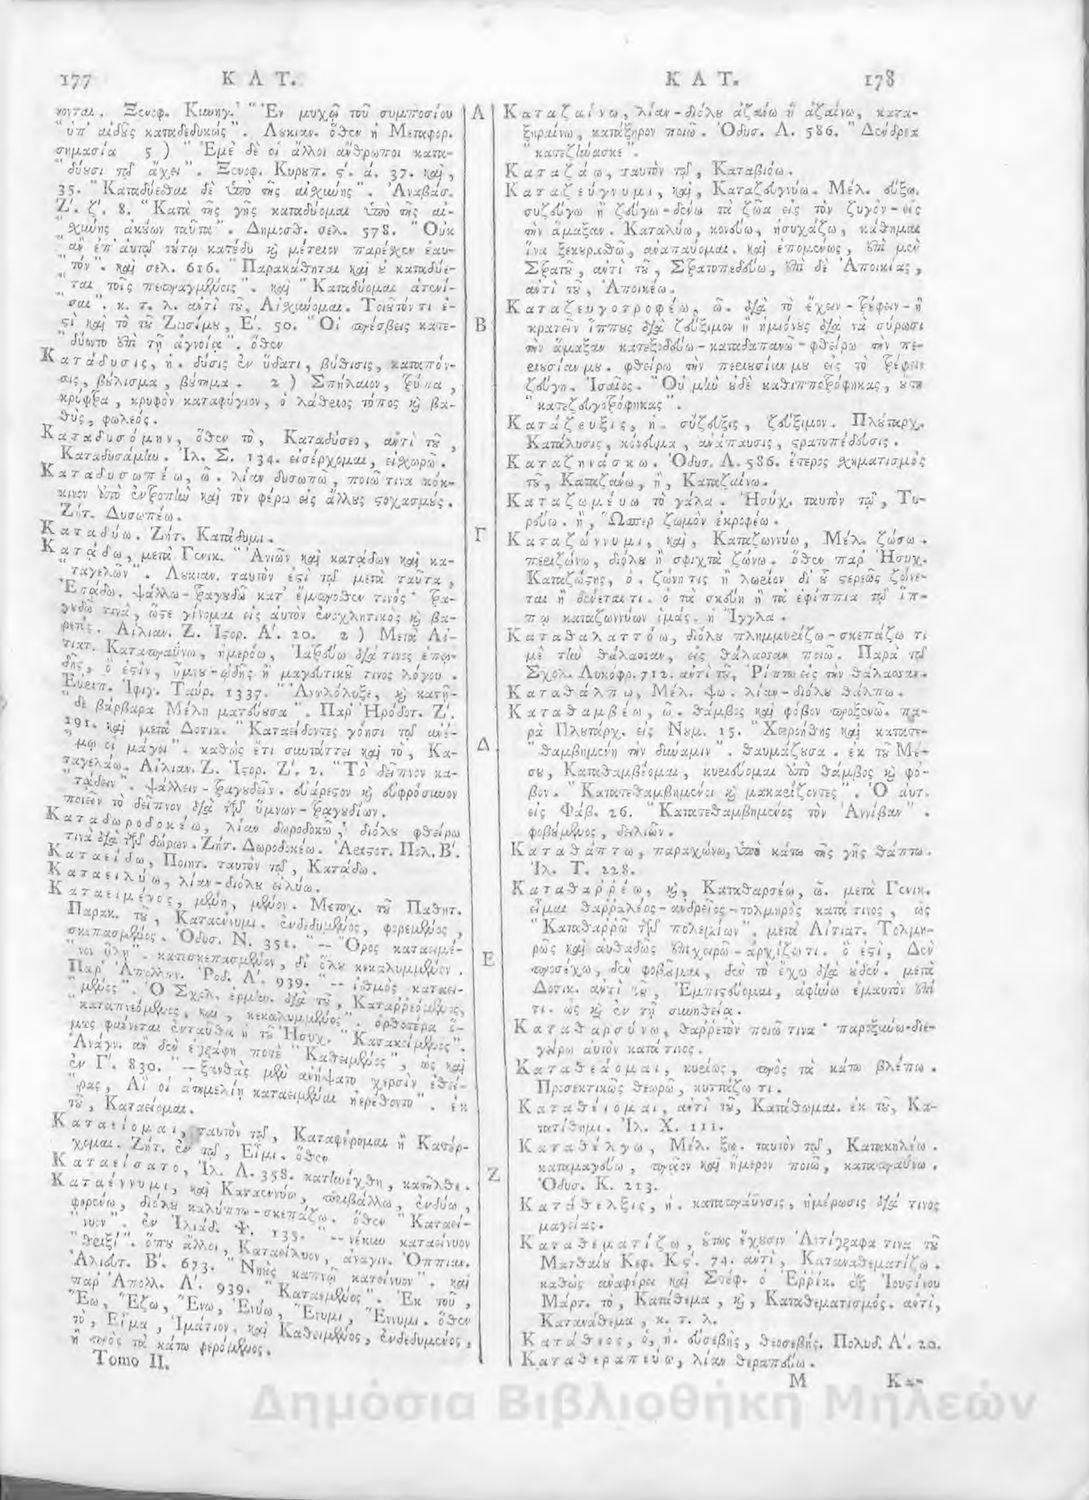 177 ΚΑΤ.
ΚΑΤ. 178
νονται. Ξενοφ. Κυνηγ. "Ἐν μυχῷ τοῦ συμποσίου
"ὑπ' αἰδοῦς καταδεδυκώς". Λουκιαν. ὅθεν ἡ Μεταφορ.
σημασία 5) "Ἐμὲ δὲ οἱ ἄλλοι ἄνθρωποι κατα-
"δύουσι τῷ ἄχει". Ξενοφ. Κυρουπ. ϛ'. ά. 37. καὶ,
35. "Καταδύεσθαι δὲ ὑπὸ τῆς αἰσχύνης". Ἀναβάσ.
Ζ'. ζ'. 8. "Κατὰ τῆς γῆς καταδύομαι ὑπὸ τῆς αἰ-
"σχύνης ἀκούων ταῦτα". Δημοσθ. σελ. 578. "Οὐκ
"ἂν ἐπ' αὐτῷ τούτῳ κατέδυ καὶ μέτριον παρέσχεν ἑαυ-
"τόν". καὶ σελ. 616. "Παρακάθηται καὶ οὐ καταδύε-
"ται τοῖς πεπραγμένοις". καὶ "Καταδύομαι ἀτενί-
"σαι". κ. τ. λ. ἀντὶ τοῦ, Αἰσχύνομαι. Τοιοῦτόν τι ἐ-
στὶ καὶ τὸ τοῦ Ζωσίμου, Ε'. 50. "Οἱ πρέσβεις κατε-
"δύοντο ἐπὶ τῇ ἀγνοίᾳ". ὅθεν
Κατάδυσις, ἡ. δύσις ἐν ὕδατι, βύθισις, καταπόν-
σις, βούλισμα, βούτημα. 2) Σπήλαιον, τρύπα,
κρύφτρα, κρυφὸν καταφύγιον, ὁ λάθριος τόπος καὶ βα-
θὺς, φωλεός.
Καταδυσόμην, ὅθεν τὸ, Καταδύσεο, ἀντὶ τοῦ,
Καταδυσάμην. Ἰλ. Σ. 134. εἰσέρχομαι, εἰσχωρῶ.
Καταδυσωπέω, ῶ. λίαν δυσωπῶ, ποιῶ τινα κόκ-
κινον ὑπὸ ἐντροπὴν καὶ τὸν φέρω εἰς ἄλλους στοχασμούς.
Ζήτ. Δυσωπέω.
Καταδύω. Ζήτ. Κατάδυμι.
Κατᾴδω, μετὰ Γενικ. "Ἀνιῶν καὶ κατᾴδων καὶ κα-
"ταγελῶν". Λουκιαν. ταυτόν ἐστι τῷ μετὰ ταῦτα,
Ἐπᾴδω. ψάλλω-τραγουδῶ κατ' ἔμπροσθέν τινός· τρα-
γουδῶ τινὰ, ὥστε γίνομαι εἰς αὐτὸν ἐνοχλητικὸς καὶ βα-
ρετός. Αἰλιαν. Ζ. Ἱστορ. Α'. 20. 2) Μετὰ Αἰ-
τιατ. Καταπραΰνω, ἡμερόω, Ἰατρεύω διὰ τινος ἐπῳ-
δῆς, ὅ ἐστιν, ὕμνου-ᾠδῆς ἢ μαγευτικοῦ τινος λόγου.
Εὐριπ. Ἰφιγ. Ταύρ. 1337. "Ἀνωλόλυξε, καὶ κατῇ-
"δε βάρβαρα Μέλη ματεύουσα". Παρ' Ἡρόδοτ. Ζ'.
191. καὶ μετὰ Δοτικ. "Καταείδοντες γόησι τῷ ἀνέ-
"μῳ οἱ μάγοι". καθὼς ἔτι συντάττει καὶ τὸ, Κα-
ταγελάω. Αἰλιαν. Ζ. Ἱστορ. Ζ'. 2. "Τὸ δεῖπνον κα-
"τᾴδειν". ψάλλειν-τραγουδεῖν. εὐάρεστον καὶ εὐφρόσυνον
ποιεῖν τὸ δεῖπνον διὰ τῶν ὕμνων-τραγουδίων.
Καταδωροδοκέω, λίαν δωροδοκῶ, διόλου φθείρω
τινὰ διὰ τῶν δώρων. Ζήτ. Δωροδοκέω. Ἀριστοτ. Πολ. Β'.
Καταείδω, Ποιητ. ταυτὸν τῷ, Κατᾴδω.
Καταειλύω, λίαν-διόλου εἰλύω.
Καταειμένος, μένη, μένον. Μετοχ. τοῦ Παθητ.
Παρακ. τοῦ, Καταέννυμι. ἐνδεδυμένος, φορεμένος,
σκεπασμένος. Ὀδυσ. Ν. 351. "— Ὄρος καταειμέ-
"νον ὕλῃ". κατεσκεπασμένον, δι' ὅλου κεκαλυμμένον.
Παρ' Ἀπολλων. Ῥοδ. Α'. 939. "— ἰσθμὸς καταει-
"μένος". Ὁ Σχολ. ἑρμην. διὰ τοῦ, Καταρρεόμενος,
"καταπνεόμενος, καὶ, κεκαλυμμένος". ὀρθότερα ὅ-
μως φαίνεται ἐνταῦθα ἡ τοῦ Ἡσυχ. "Κατακείμενος".
Ἀναγν. ἂν δὲν ἐγράφη ποτὲ "Καθειμένος", ὡς καὶ
ἐν Γ'. 830. "— ξανθὰς μὲν ἀνήψατο χερσὶν ἐθεί-
"ρας, Αἵ οἱ ἀτημελίῃ καταειμέναι ἠερέθοντο". ἐκ
τοῦ, Καταείομαι.
Καταείομαι, ταυτὸν τῷ, Καταφέρομαι ἢ Κατέρ-
χομαι. Ζήτ. ἐν τῷ, Εἶμι. ὅθεν
Καταείσατο, Ἰλ. Λ. 358. κατηνέχθη, κατῆλθε.
Καταέννυμι, καὶ Καταεννύω, περιβάλλω, ἐνδύω,
φορένω, διόλου καλύπτω-σκεπάζω. ὅθεν "Καταεί-
"νυον". ἐν Ἰλιάδ. Ψ. 135. "— νέκυν καταείνυον
"θριξί". ὅπου ἄλλοι, Καταείλυον, ἀναγιν. Ὀππιαν.
Ἁλιευτ. Β'. 673. "Νηοὺς καπνῷ καταείνυον". καὶ
παρ' Ἀπολλ. Α'. 939. "Καταειμένος". Ἐκ τοῦ,
Ἔω, Ἔζω, Ἔνω, Ἐνύω, Ἔνυμι, Ἔννυμι. ὅθεν
τὸ, Εἷμα, Ἱμάτιον, καὶ Καθειμένος, ἐνδεδυμένος,
ἢ πρὸς τὰ κάτω φερόμενος.
Tomo II.
Α
Β
Γ
Δ
Ε
Ζ
Καταζαίνω, λίαν-διόλου ἀζαίω ἢ ἀζαίνω, κατα-
ξηραίνω, κατάξηρον ποιῶ. Ὀδυσ. Λ. 586. "Δένδρεα
"κατεζήνασκε".
Καταζάω, ταυτὸν τῷ, Καταβιόω.
Καταζεύγνυμι, καὶ, Καταζευγνύω. Μέλ. εύξω.
συζεύγω ἢ ζεύγω-δένω τὰ ζῶα εἰς τὸν ζυγὸν-εἰς
τὴν ἅμαξαν. Καταλύω, κονεύω, ἡσυχάζω, κάθημαι
ἵνα ξεκουρασθῶ, ἀναπαύομαι. καὶ ἑπομένως, ἐπὶ μὲν
Στρατοῦ, ἀντὶ τοῦ, Στρατοπεδεύω, ἐπὶ δὲ Ἀποικίας,
ἀντὶ τοῦ, Ἀποικέω.
Καταζευγοτροφέω, ῶ. διὰ τὸ ἔχειν-τρέφειν-ἢ
κρατεῖν ἵππους διὰ ζεύξιμον ἢ ἡμιόνους διὰ νὰ σύρωσι
τὴν ἅμαξαν κατεξοδεύω-καταδαπανῶ-φθείρω τὴν πε-
ριουσίαν μου. φθείρω τὴν περιουσίαν μου εἰς τὸ τρέφειν
ζεύγη. Ἰσαῖος. "Οὐ μὴν οὐδὲ καθιπποτρόφηκας, οὔτε
"κατεζευγοτρόφηκας".
Κατάζευξις, ἡ. σύζευξις, ζεύξιμον. Πλούταρχ.
Κατάλυσις, κόνευμα, ἀνάπαυσις, στρατοπέδευσις.
Καταζηνάσκω. Ὀδυσ. Λ. 586. ἕτερος σχηματισμὸς
τοῦ, Καταζάνω, ἢ, Καταζαίνω.
Καταζωμεύω τὸ γάλα. Ἡσύχ. ταυτὸν τῷ, Τυ-
ρεύω. ἢ, Ὥσπερ ζωμὸν ἐκροφέω.
Καταζώννυμι, καὶ, Καταζωννύω, Μέλ. ζώσω.
περιζώνω, διόλου ἢ σφιχτὰ ζώνω. ὅθεν παρ' Ἡσυχ.
Καταζώστης, ὁ. ζώνη τις ἢ λωρίον δι' οὗ στερεῶς ζώνε-
ται ἢ δένεταί τι. ὁ τὰ σκεύη ἢ τὰ ἐφίππια τῷ ἵπ-
πῳ καταζωννύων ἱμάς. ἡ Ἴγγλα.
Καταθαλαττόω, διόλου πλημμυρίζω-σκεπάζω τι
μὲ τὴν θάλασσαν, εἰς θάλασσαν ποιῶ. Παρὰ τῷ
Σχολ. Λυκόφρ. 712. ἀντὶ τοῦ, Ῥίπτω εἰς τὴν θάλασσαν.
Καταθάλπω, Μέλ. ψω. λίαν-διόλου θάλπω.
Καταθαμβέω, ῶ. θάμβος καὶ φόβον προξενῶ. πα-
ρὰ Πλουτάρχ. εἰς Νουμ. 15. "Χειροήθης καὶ κατατε-
"θαμβημένη τὴν δύναμιν". θαυμάζουσα. ἐκ τοῦ Μέ-
σου, Καταθαμβέομαι, κυριεύομαι ὑπὸ θάμβος καὶ φό-
βον. "Κατατεθαμβημένοι καὶ μακαρίζοντες". Ὁ αὐτ.
εἰς Φάβ. 26. "Κατατεθαμβημένος τὸν Ἀννίβαν".
φοβούμενος, δειλιῶν.
Καταθάπτω, παραχώνω, ὑπὸ κάτω τῆς γῆς θάπτω.
Ἰλ. Τ. 228.
Καταθαρρέω, καὶ, Καταθαρσέω, ῶ. μετὰ Γενικ.
εἶμαι θαρραλέος-ἀνδρεῖος-τολμηρὸς κατά τινος, ὡς
"Καταθαρρῶ τῶν πολεμίων". μετὰ Αἰτιατ. Τολμη-
ρῶς καὶ αὐθαδῶς ἐπιχειρῶ-ἀρχίζω τι. ὅ ἐστι, Δὲν
προσέχω, δὲν φοβοῦμαι, δὲν τὸ ἔχω διὰ οὐδέν. μετὰ
Δοτικ. ἀντὶ τοῦ, Ἐμπιστεύομαι, ἀφίνω ἐμαυτὸν ἐπί
τι. ὡς καὶ ἐν τῇ συνηθείᾳ.
Καταθαρσύνω, θαρρετὸν ποιῶ τινα· παροξύνω-διε-
γείρω αὐτὸν κατά τινος.
Καταθεάομαι, κυρίως, πρὸς τὰ κάτω βλέπω.
Προσεκτικῶς θεωρῶ, κυττάζω τι.
Καταθείομαι, ἀντὶ τοῦ, Κατάθωμαι. ἐκ τοῦ, Κα-
τατίθημι. Ἰλ. Χ. 111.
Καταθέλγω, Μέλ. ξω. ταυτὸν τῷ, Κατακηλέω.
καταμαγεύω, πρᾶον καὶ ἥμερον ποιῶ, καταπραΰνω.
Ὀδυσ. Κ. 213.
Κατάθελξις, ἡ. καταπράϋνσις, ἡμέρωσις διὰ τινος
μαγείας.
Καταθεματίζω, οὕτως ἔχουσιν Ἀντίγραφά τινα τοῦ
Ματθαίου Κεφ. Κϛ'. 74. ἀντὶ, Καταναθεματίζω.
καθὼς ἀναφέρει καὶ Στέφ. ὁ Ἑρρίκ. ἐξ Ἰουστίνου
Μάρτ. τὸ, Κατάθεμα, καὶ, Καταθεματισμός. ἀντὶ,
Κατανάθεμα, κ. τ. λ.
Κατάθεος, ὁ, ἡ. εὐσεβὴς, θεοσεβής. Πολυδ. Α'. 20.
Καταθεραπεύω, λίαν θεραπεύω.
Μ Κα-
Δημόσια Βιβλιοθήκη Μηλεών